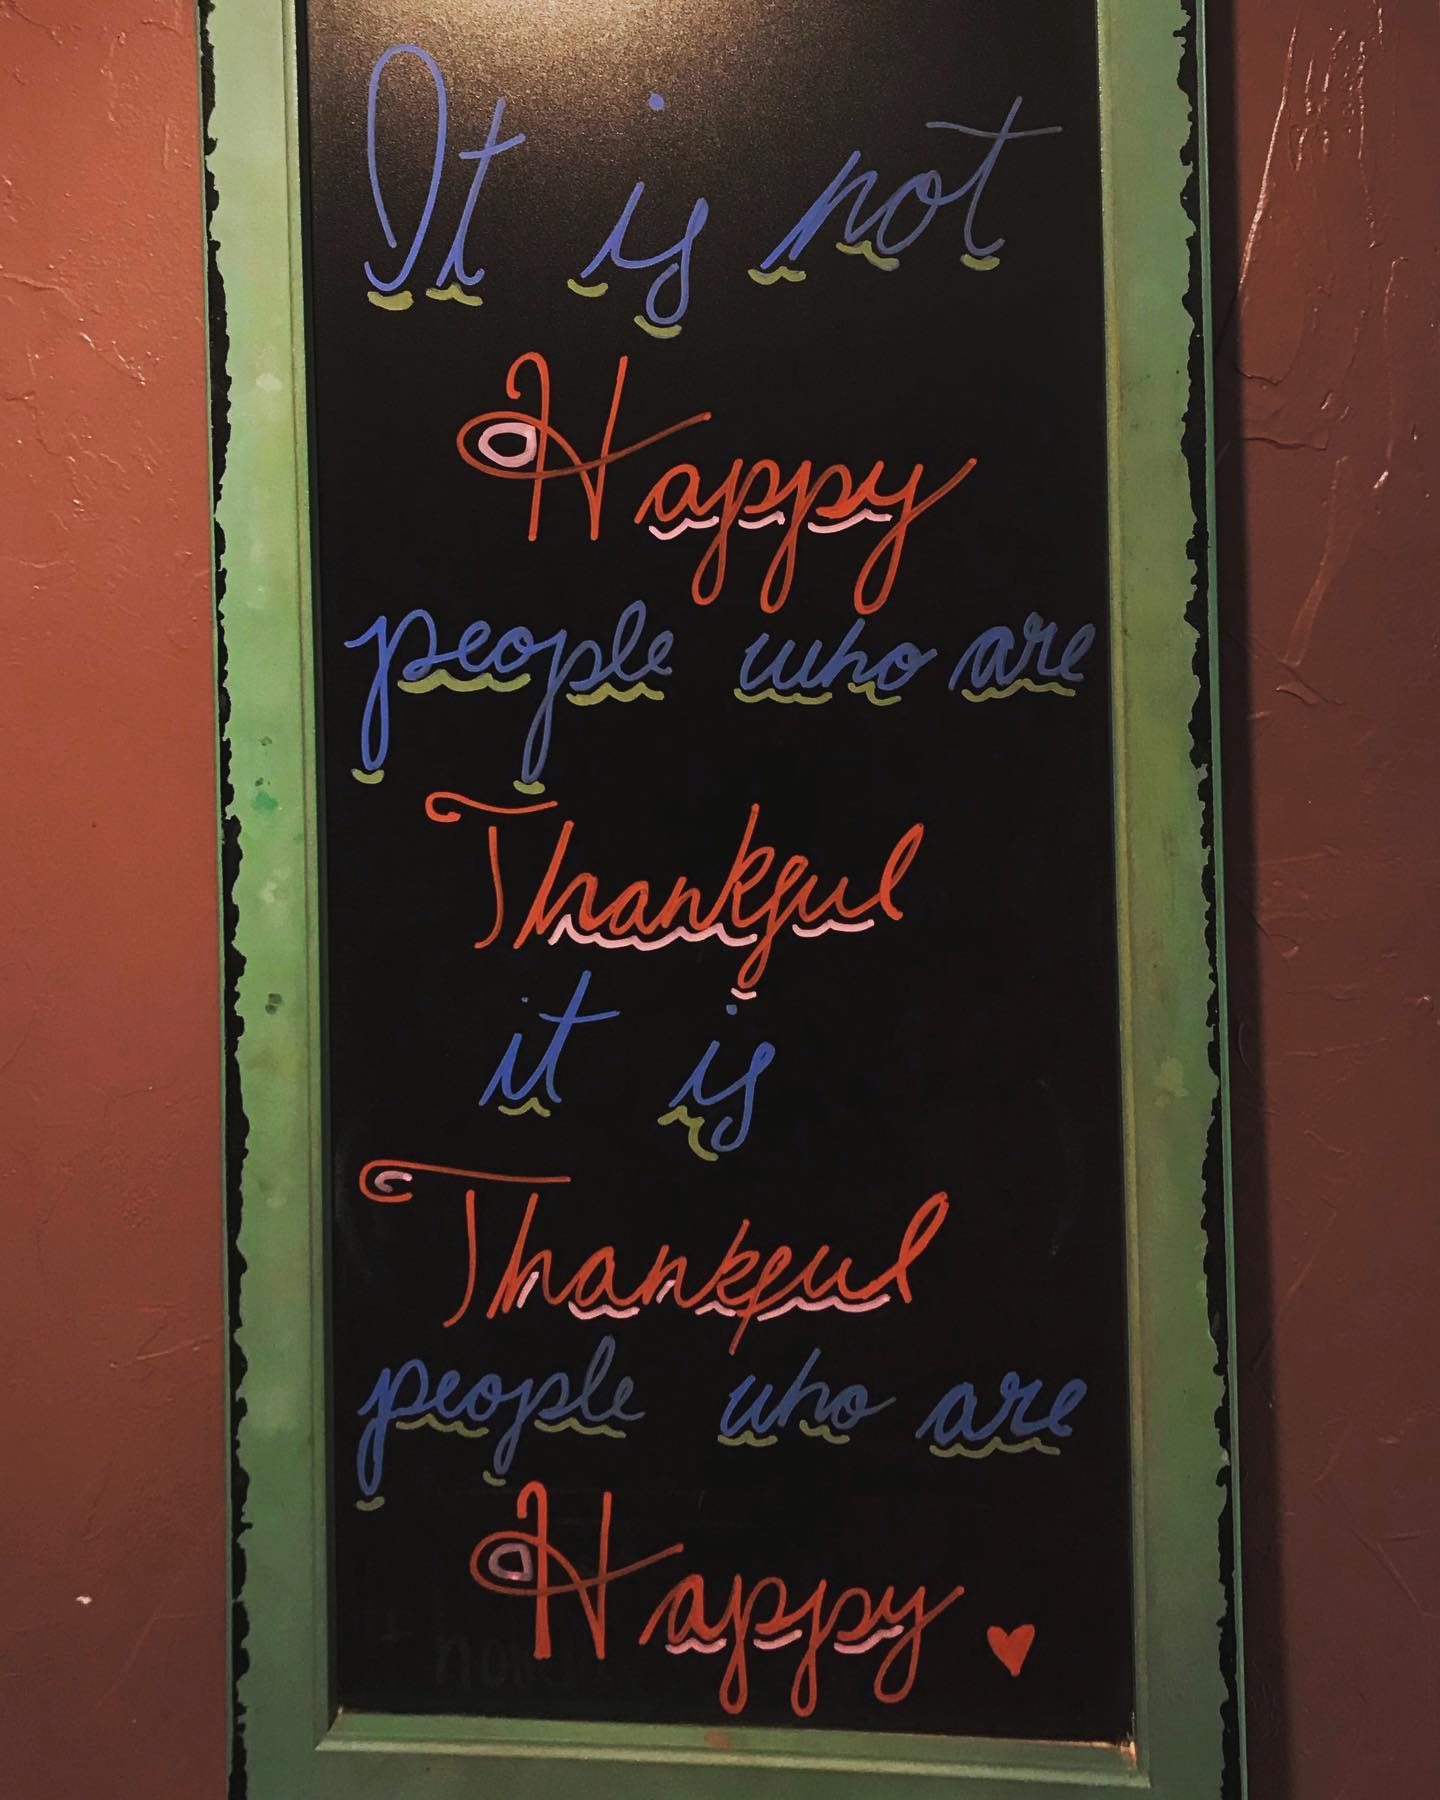 It is not
Happy
people who are
Thankful
it is
Thankful
people who are
Happy